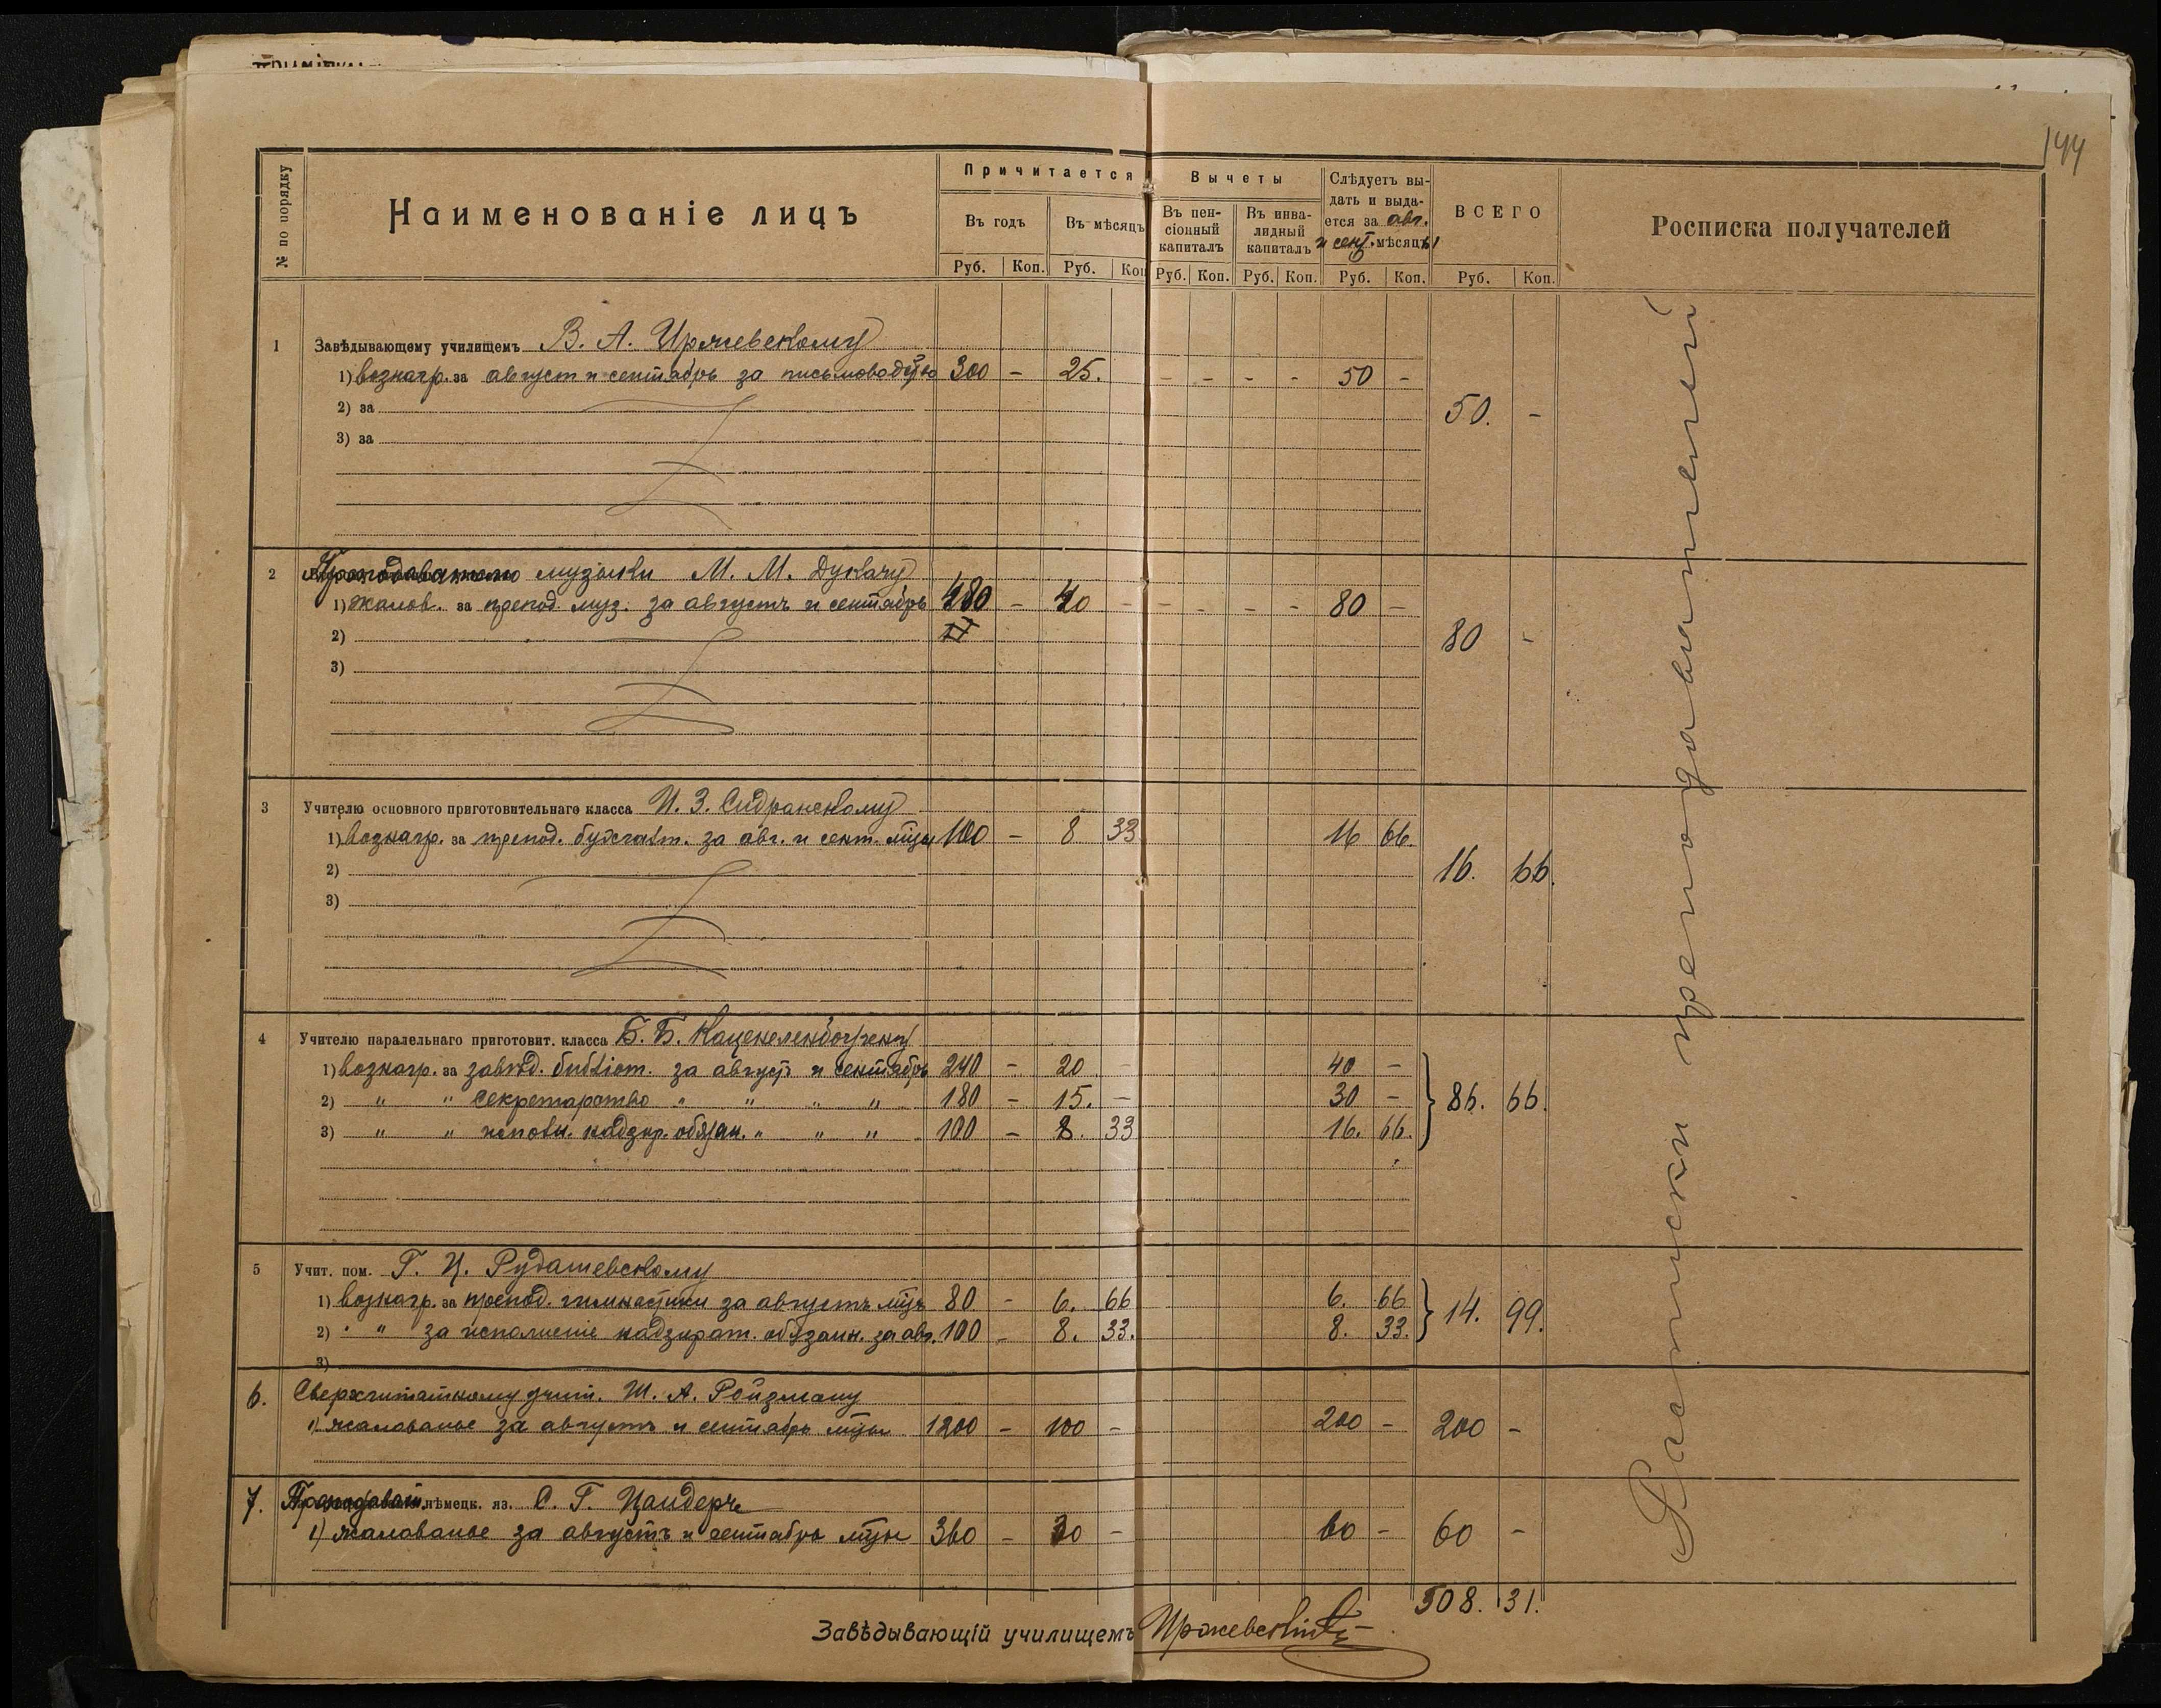 144
№ по порядку
Наименованіе лицъ
Причитается
Въ годъ
Въ мѣсяцъ
Вычеты
Въ пен-
сіонный
капиталъ
Въ инва-
лидный
капиталъ
Слѣдуетъ вы-
дать и выда-
ется за авг.
и сент. мѣсяцы
ВСЕГО
Росписка получателей
Руб. Коп. Руб. Коп Руб. Коп. Руб. Коп. Руб. Коп. Руб. Коп.
1 Завѣдывающему училищемъ В. А. Иржевскому
1) вознагр. за август и сентябрь за письмоводство 300 - 25. - - - - 50 -
2) за
3) за
50. -
2 Преподавателю музыки М. М. Дукачу
1) жалов. за препод. муз. за августъ и сентябрь 480 - 40 - - - - - 80 -
2)
3)
80 -
3 Учителю основного приготовительнаго класса И. З. Сидранскому
1) вознагр. за препод. бухгалт. за авг. и сент. м̃цы 100 - 8 33 16 66.
2)
3)
16. 66.
4 Учителю паралельнаго приготовит. класса Б. Б. Каценеленбогену
1) вознагр. за завѣд. библіот. за августъ и сентябрь 240 - 20 - 40 -
2) " " секретарство " " " " 180 - 15. - 30 - 86. 66.
3) " " исполн. надзир. обязан. " " " 100 - 8. 33 16. 66.
5 Учит. пом. Г. Ц. Рудашевскому
1) вознагр. за препод. гимнастики за августъ м̃цъ 80 - 6. 66 6. 66 14. 99.
2) " " за исполненіе надзират. обязанн. за авг. 100 - 8. 33. 8. 33.
3)
6. Сверхштатному учит. Ш. А. Ройзману
1) жалованье за августъ и сентябрь м̃цы 1200 - 100 - 200 - 200 -
7. Преподават. нѣмецк. яз. С. Г. Цандеръ
1) жалованье за августъ и сентябрь м̃цы 360 - 30 - 60 - 60 -
508. 31.
Завѣдывающій училищемъ Иржевскій
Расписки преподавателей